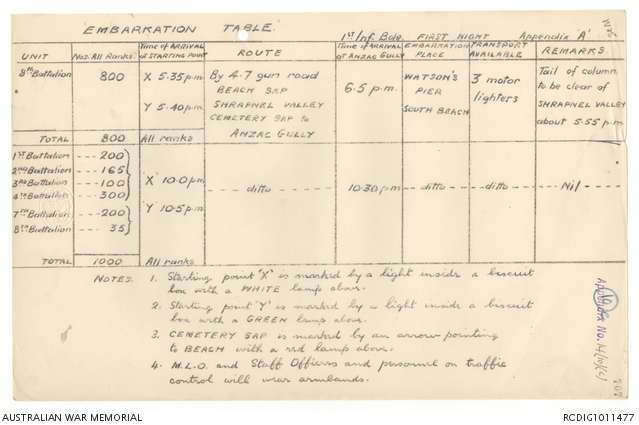 EMBARKATION TABLE. 1st/Inf. Bde. FIRST NIGHT Appendix 'A'
UNIT Nos. All Ranks Time of ARRIVAL at STARTING POINT ROUTE Time of ARRIVAL at ANZAC GULLY EMBARKATION PLACE TRANSPORT AVAILABLE REMARKS
8th Battalion 800 X 5.35 p.m. By 4.7 gun road 6.5 p.m. WATSON'S 3 motor Tail of column
BEACH SAP PIER lighters to be clear of
Y 5.40 p.m. SHRAPNEL VALLEY SOUTH BEACH SHRAPNEL VALLEY
CEMETERY SAP to about 5.55 p.m
ANZAC GULLY
TOTAL 800 All ranks
1st Battalion --- 200
2nd Battalion --- 165
3rd Battalion --- 100 'X' 10.0 p.m --- ditto --- 10.30 p.m --- ditto --- --- ditto --- --- Nil ---
4th Battalion --- 300
7th Battalion --- 200 'Y' 10.5 p.m.
8th Battalion --- 35
TOTAL 1000 All ranks
NOTES. 1. Starting point 'X' is marked by a light inside a biscuit
box with a WHITE lamp above.
2. Starting point 'Y' is marked by a light inside a biscuit
box with a GREEN lamp above.
3. CEMETERY SAP is marked by an arrow pointing
to BEACH with a red lamp above.
4. M.L.O. and Staff Officers and personnel on traffic
control will wear armbands.
207
AUSTRALIAN WAR MEMORIAL RCDIG1011477